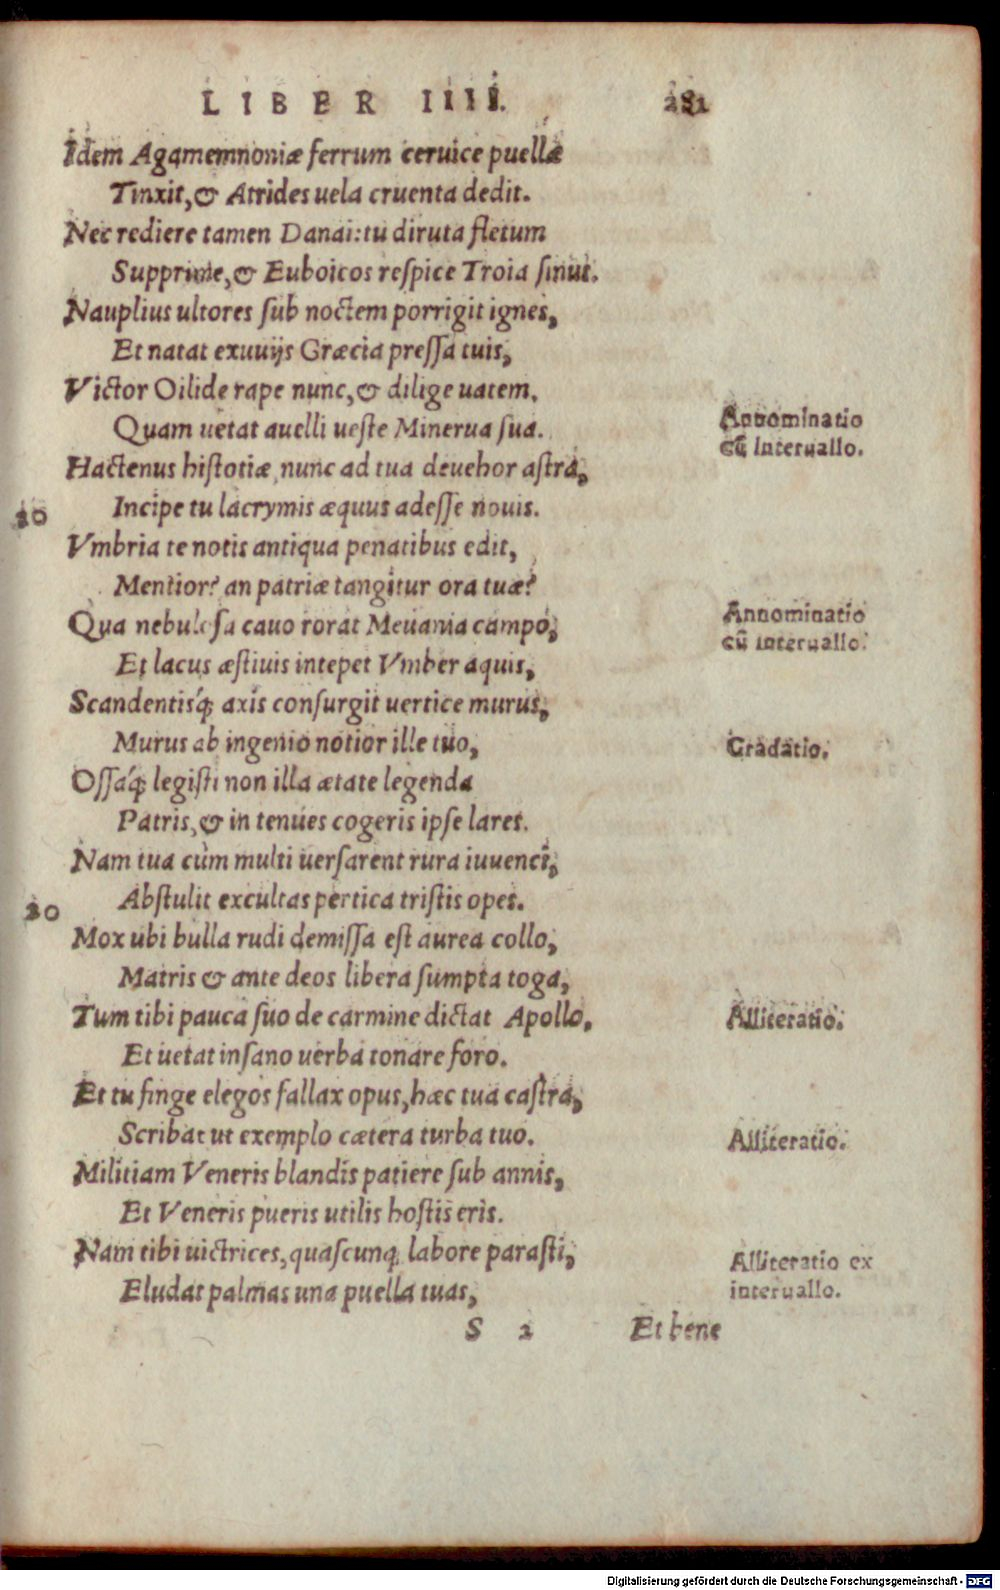 LIBER IIII. 281
Idem Agamemnoniæ ferrum ceruice puellæ
Tinxit, & Atrides uela cruenta dedit.
Nec rediere tamen Danai: tu diruta fletum
Supprime, & Euboicos reſpice Troia ſinus.
Nauplius ultores ſub noctem porrigit ignes,
Et natat exuuijs Græcia preſſa tuis,
Victor Oilide rape nunc, & dilige uatem.
Quam uetat auelli ueſte Minerua ſua.
Annominatio
cū interuallo.
Hactenus hiſtotiæ, nunc ad tua deuehor aſtra,
Incipe tu lacrymis æquus adeſſe nouis.
Vmbria te notis antiqua penatibus edit,
Mentior? an patriæ tangitur ora tuæ?
Qua nebuloſa cauo rorat Meuania campo,
Annominatio
cū interuallo.
Et lacus æſtiuis intepet Vmber aquis,
Scandentisq́; axis conſurgit uertice murus,
Murus ab ingenio notior ille tuo,
Gradatio.
Oſſaq́; legiſti non illa ætate legenda
Patris, & in tenues cogeris ipſe lares.
Nam tua cùm multi uerſarent rura iuuenci,
Abſtulit excultas pertica triſtis opes.
20
Mox ubi bulla rudi demiſſa eſt aurea collo,
Matris & ante deos libera ſumpta toga,
Tum tibi pauca ſuo de carmine dictat Apollo,
Alliteratio.
Et uetat inſano uerba tonare foro.
Et tu finge elegos fallax opus, hæc tua caſtra,
Scribat ut exemplo cætera turba tuo.
Alliteratio.
Militiam Veneris blandis patiere ſub annis,
Et Veneris pueris utilis hoſtis eris.
Nam tibi uictrices, quaſcunq; labore paraſti,
Alliteratio ex
interuallo.
Eludat palmas una puella tuas,
S 2 Et bene
Digitalisierung gefördert durch die Deutsche Forschungsgemeinschaft - DFG